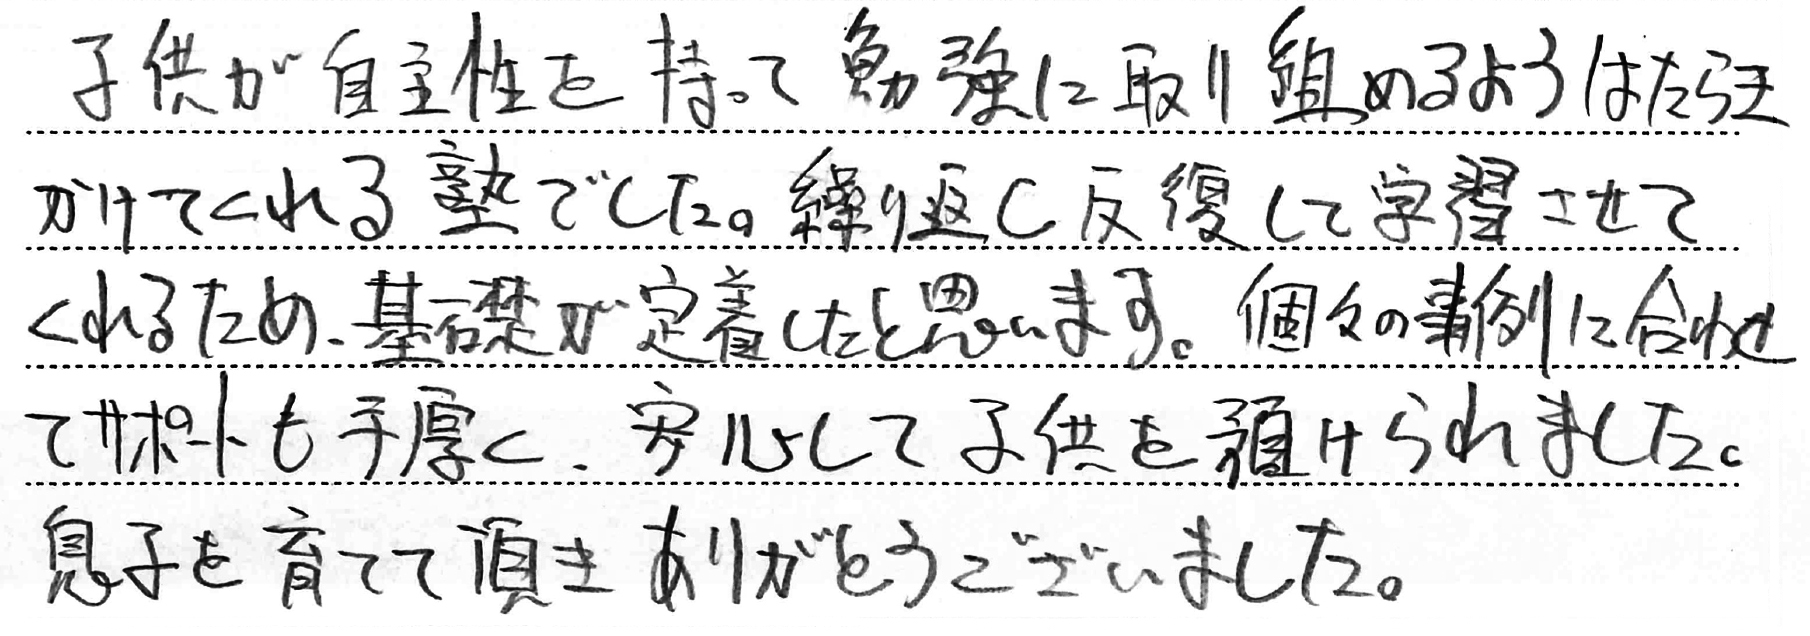 子供が自主性を持って勉強に取り組めるようはたらき
かけてくれる塾でした。繰り返し反復して学習させて
くれるため、基礎が定着したと思います。個々の事例に合わせ
てサポートも手厚く、安心して子供を預けられました。
息子を育てて頂きありがとうございました。